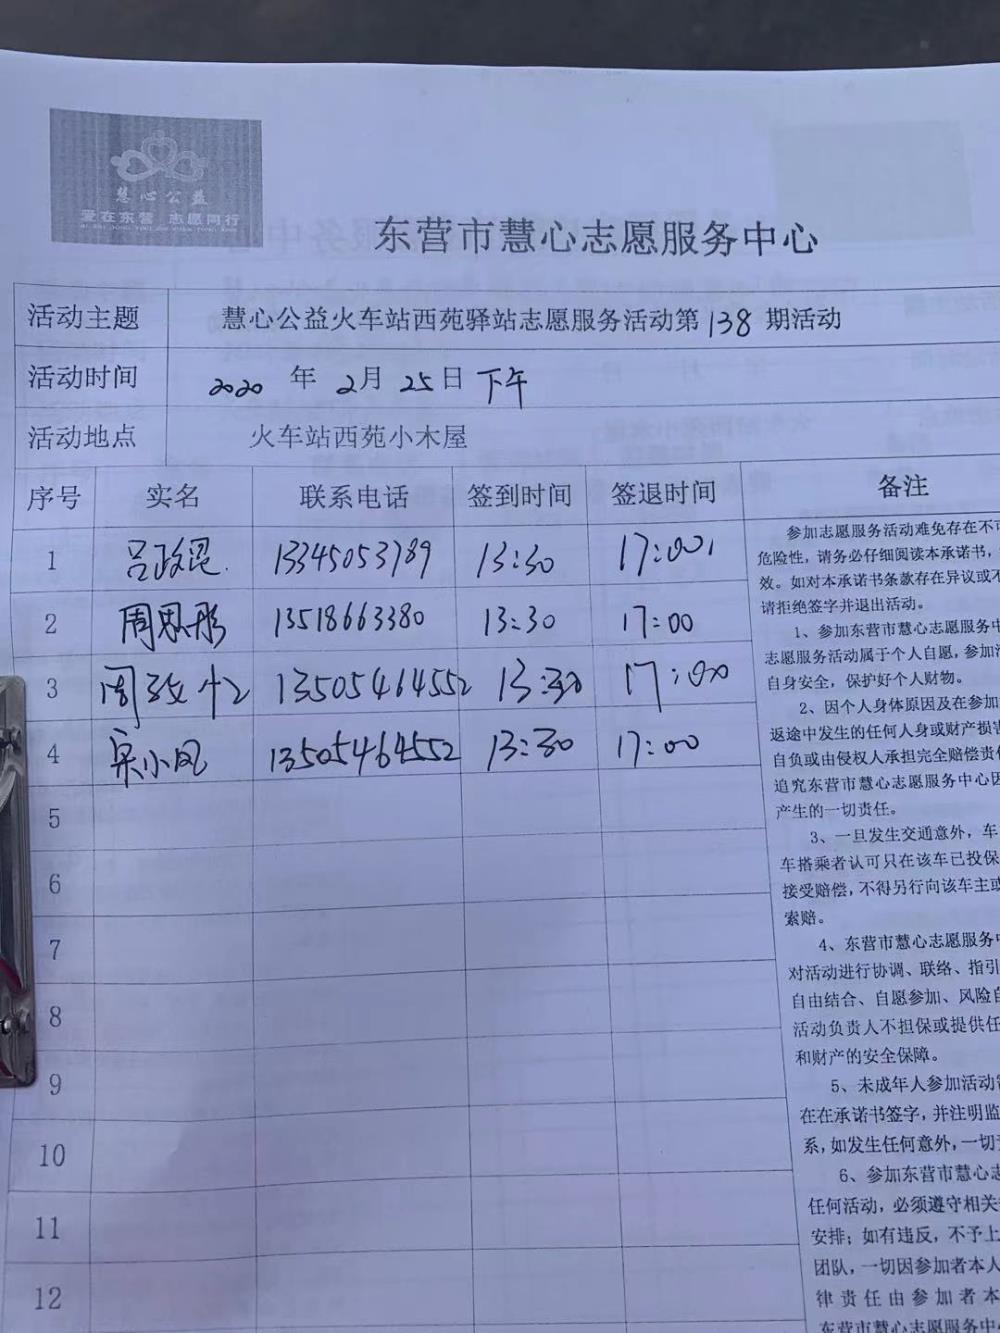 慧心公益
爱在东营 志愿同行
东营市慧心志愿服务中心
活动主题 慧心公益火车站西苑驿站志愿服务活动第138期活动
活动时间 2020年2月25日下午
活动地点 火车站西苑小木屋
序号 实名 联系电话 签到时间 签退时间 备注
1 吕政昆 13345053789 13:30 17:00
2 周思彤 13518663380 13:30 17:00
3 13505464552 13:30 17:00
4 宋小凤 13505464552 13:30 17:00
5
6
7
8
9
10
11
12
参加志愿服务活动难免存在不可
危险性，请务必仔细阅读本承诺书，
效。如对本承诺书条款存在异议或不
请拒绝签字并退出活动。
1、参加东营市慧心志愿服务中
志愿服务活动属于个人自愿，参加活
自身安全，保护好个人财物。
2、因个人身体原因及在参加
返途中发生的任何人身或财产损害
自负或由侵权人承担完全赔偿责任
追究东营市慧心志愿服务中心因
产生的一切责任。
3、一旦发生交通意外，车
车搭乘者认可只在该车已投保
接受赔偿，不得另行向该车主或
索赔。
4、东营市慧心志愿服务中
对活动进行协调、联络、指引
自由结合、自愿参加、风险自
活动负责人不担保或提供任
和财产的安全保障。
5、未成年人参加活动需
在在承诺书签字，并注明监
系，如发生任何意外，一切责
6、参加东营市慧心志
任何活动，必须遵守相关
安排；如有违反，不予上
团队，一切因参加者本人
律责任由参加者本
东营市慧心志愿服务中心